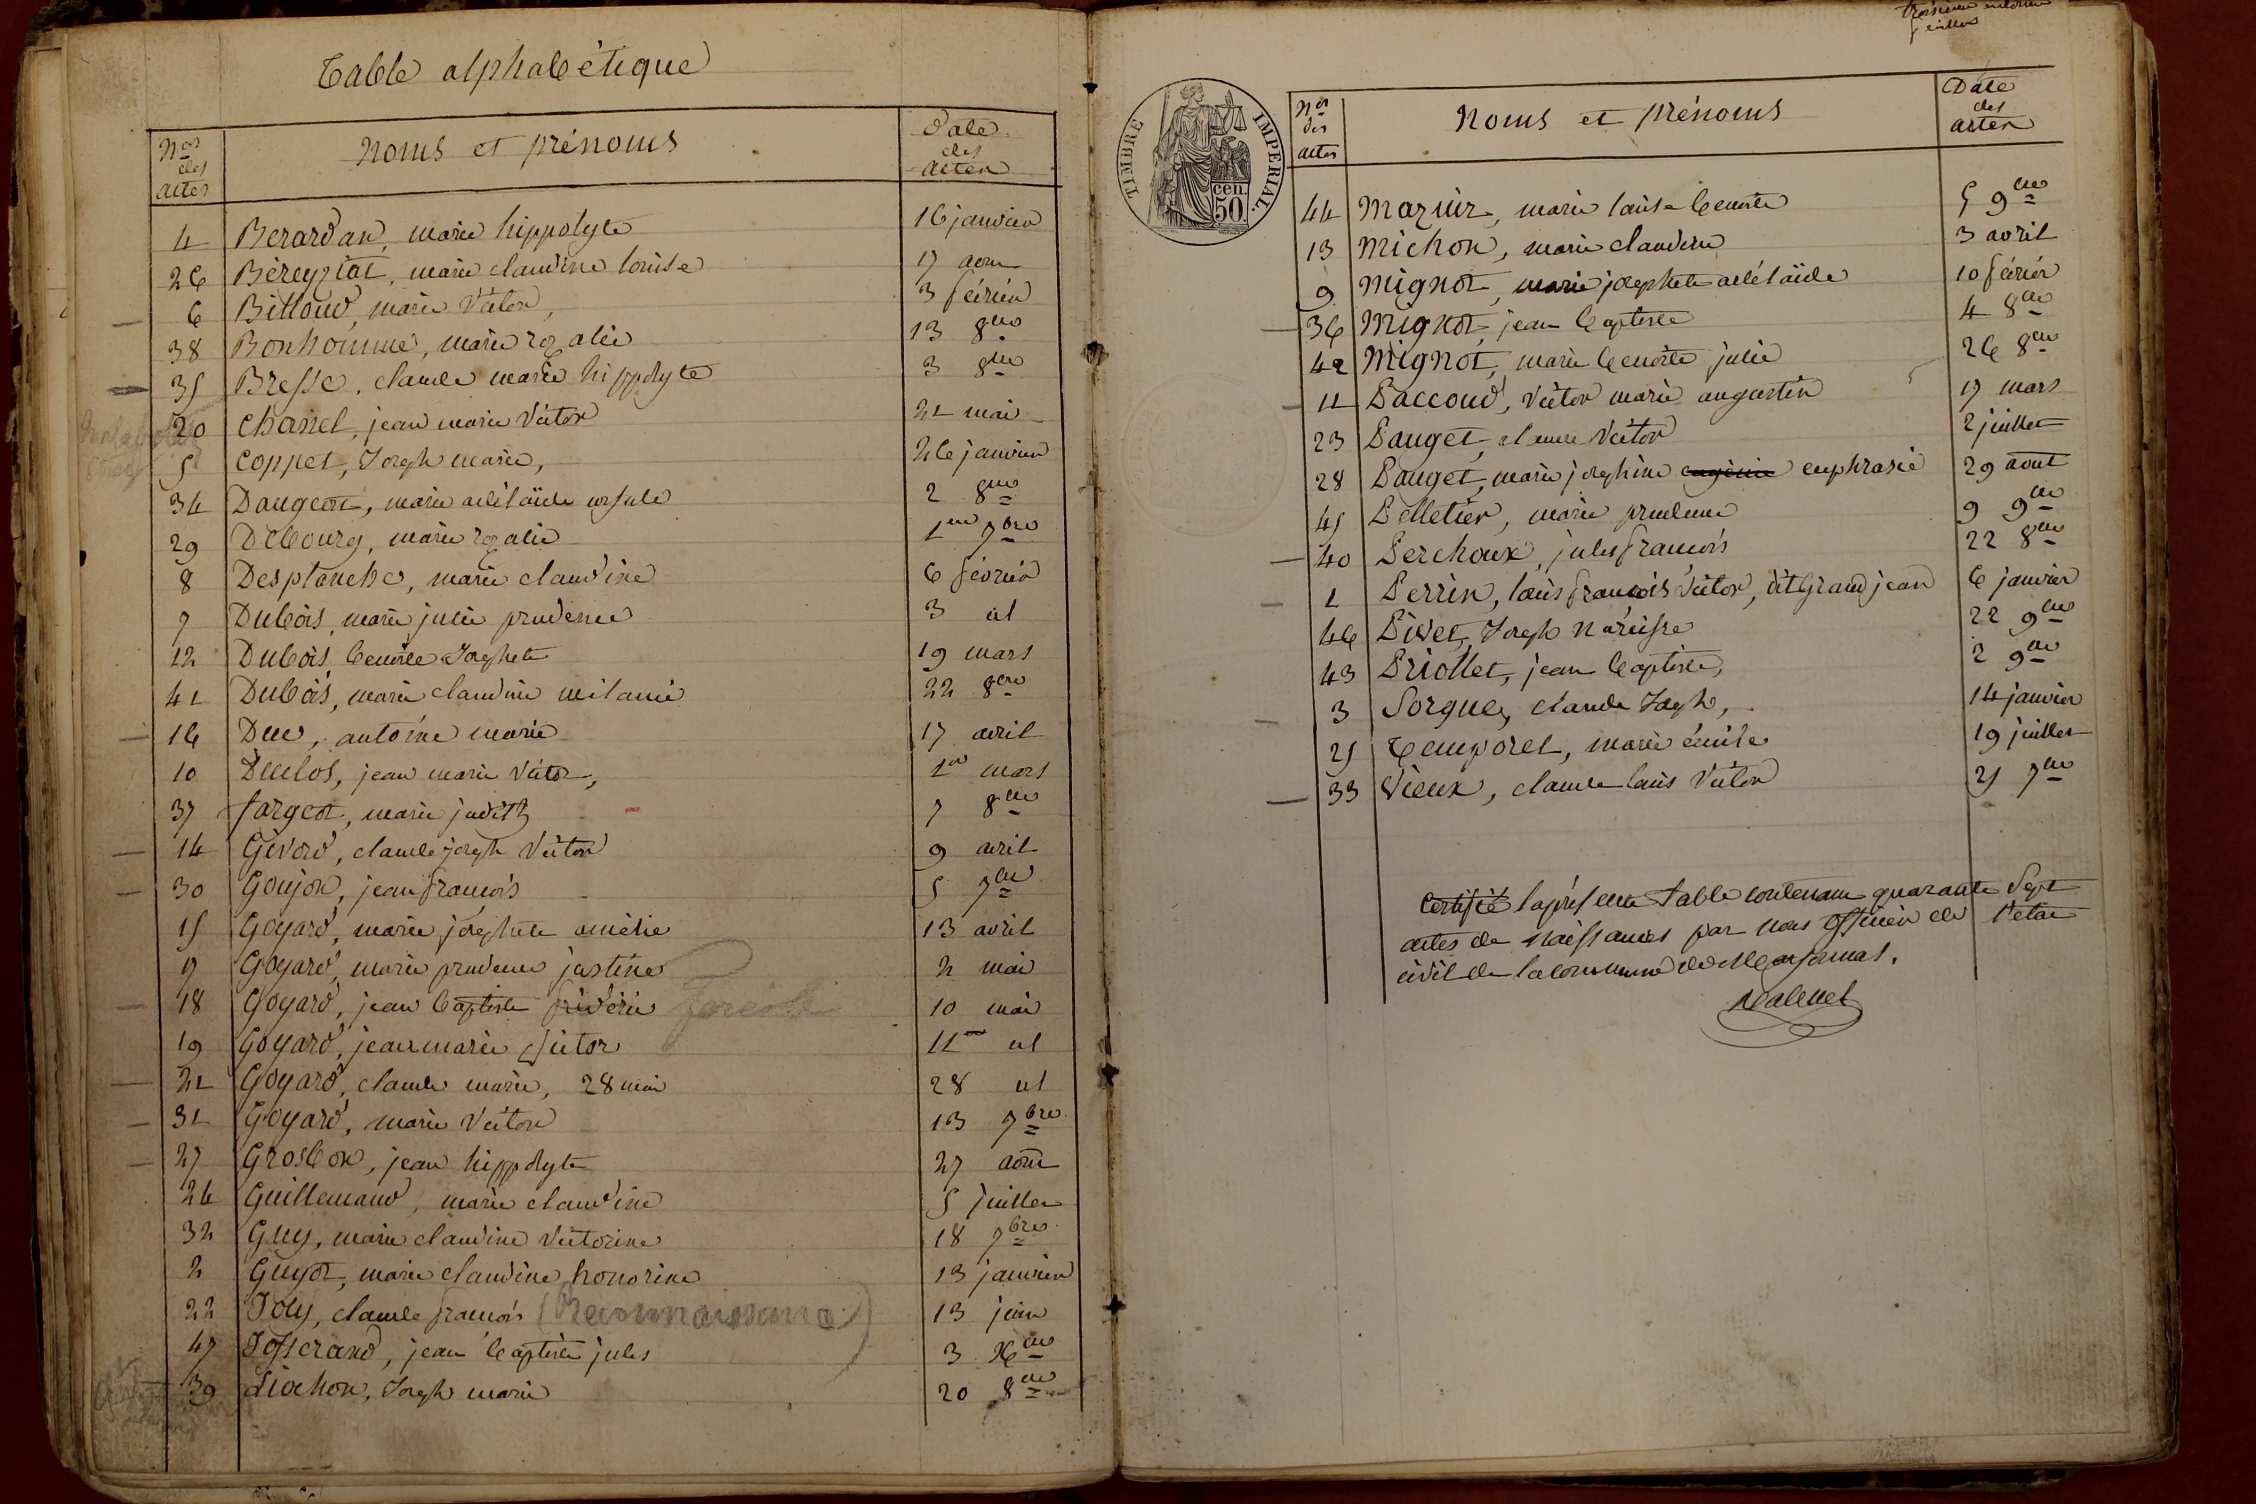 Table alphabétique
Nos des actes
Noms et prénoms
Date des actes
4 Berardan, marie hippolyte 16 janvier
26 Béreyziat, marie claudine louise 17 aout
6 Billoud, marie Victor, 3 février
38 Bonhomme, marie rozalie 13 8bre
35 Bresse, claude marie hippolyte 3 8bre
20 Chanel, jean marie Victor 21 mai
5 Coppet, Joseph marie, 26 janvier
34 Daugeot, marie adélaïde ursule 2 8bre
29 Debourg, marie rozalie 1er 7bre
8 Desplanche, marie claudine 6 février
7 Dubois, marie julie prudence 3 id
12 Dubois, benoite Josephete 19 mars
41 Dubois, marie claudine mélanie 22 8bre
16 Duc, antoine marie 17 avril
10 Duclos, jean marie Victor, 1er mars
37 fargeot, marie judith 7 8bre
14 Givord, claude joseph Victor 9 avril
30 Goujon, jean françois 5 7bre
15 Goyard, marie josephete amélie 13 avril
17 Goyard, marie prudence justine 2 mai
18 Goyard, jean baptiste fridéric 10 mai
19 Goyard, jean marie Victor 11 id
21 Goyard, claude marie, 28 mai 28 id
31 Goyard, marie Victor 13 7bre
27 Grosbon, jean hippolyte 27 aout
24 Guillemaud, marie claudine 5 juillet
32 Guy, marie claudine Victorine 18 7bre
2 Guyot, marie claudine honorine 13 janvier
22 Joly, claude françois (Reconnaissance) 13 juin
47 Josserand, jean baptiste jules 3 Xbre
39 Liochon, Joseph marie 20 8bre
troisieme et dernier feuillet
TIMBRE IMPERIAL.
50 cen.
Nos des actes
Noms et prénoms
Date des actes
44 Mazuir, marie louise benoite 5 9bre
13 Michon, marie claudine 3 avril
9 Mignot, marie josephete adélaïde 10 février
36 Mignot, jean baptiste 4 8bre
42 Mignot, marie benoite julie 26 8bre
11 Paccoud, Victor marie augustin 17 mars
23 Pauget, claude Victor 2 juillet
28 Pauget, marie joséphine eugénie euphrasie 29 aout
45 Pelletier, marie prudence 9 9bre
40 Perchoux, jules françois 22 8bre
1 Perrin, louis françois Victor, dit Grand jean 6 janvier
46 Pivet, Joseph narcisse 22 9bre
43 Priollet, jean baptiste, 2 9bre
3 Sorgue, claude Joseph, 14 janvier
25 Temporel, marie émile 19 juillet
33 Vieux, claude louis Victor 25 7bre
Certifié la présente table contenant quarante Sept
actes de Naissances par nous officier de l'état
civil de la commune de Marsonnas.